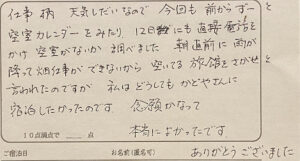 仕事柄 天気しだいなので 今回も前からずーっと
空室カレンダーをみたり、12日にも直接電話を
かけ空室がないか調べました 朝直前に雨が
降って畑仕事ができないから空いてる旅館をさがせと
言われたのですが 私はどうしてもかどやさんに
宿泊したかったのです 念願かなって
本当によかったです
10点満点で 点
ありがとうございました
ご宿泊日 お名前(匿名可)